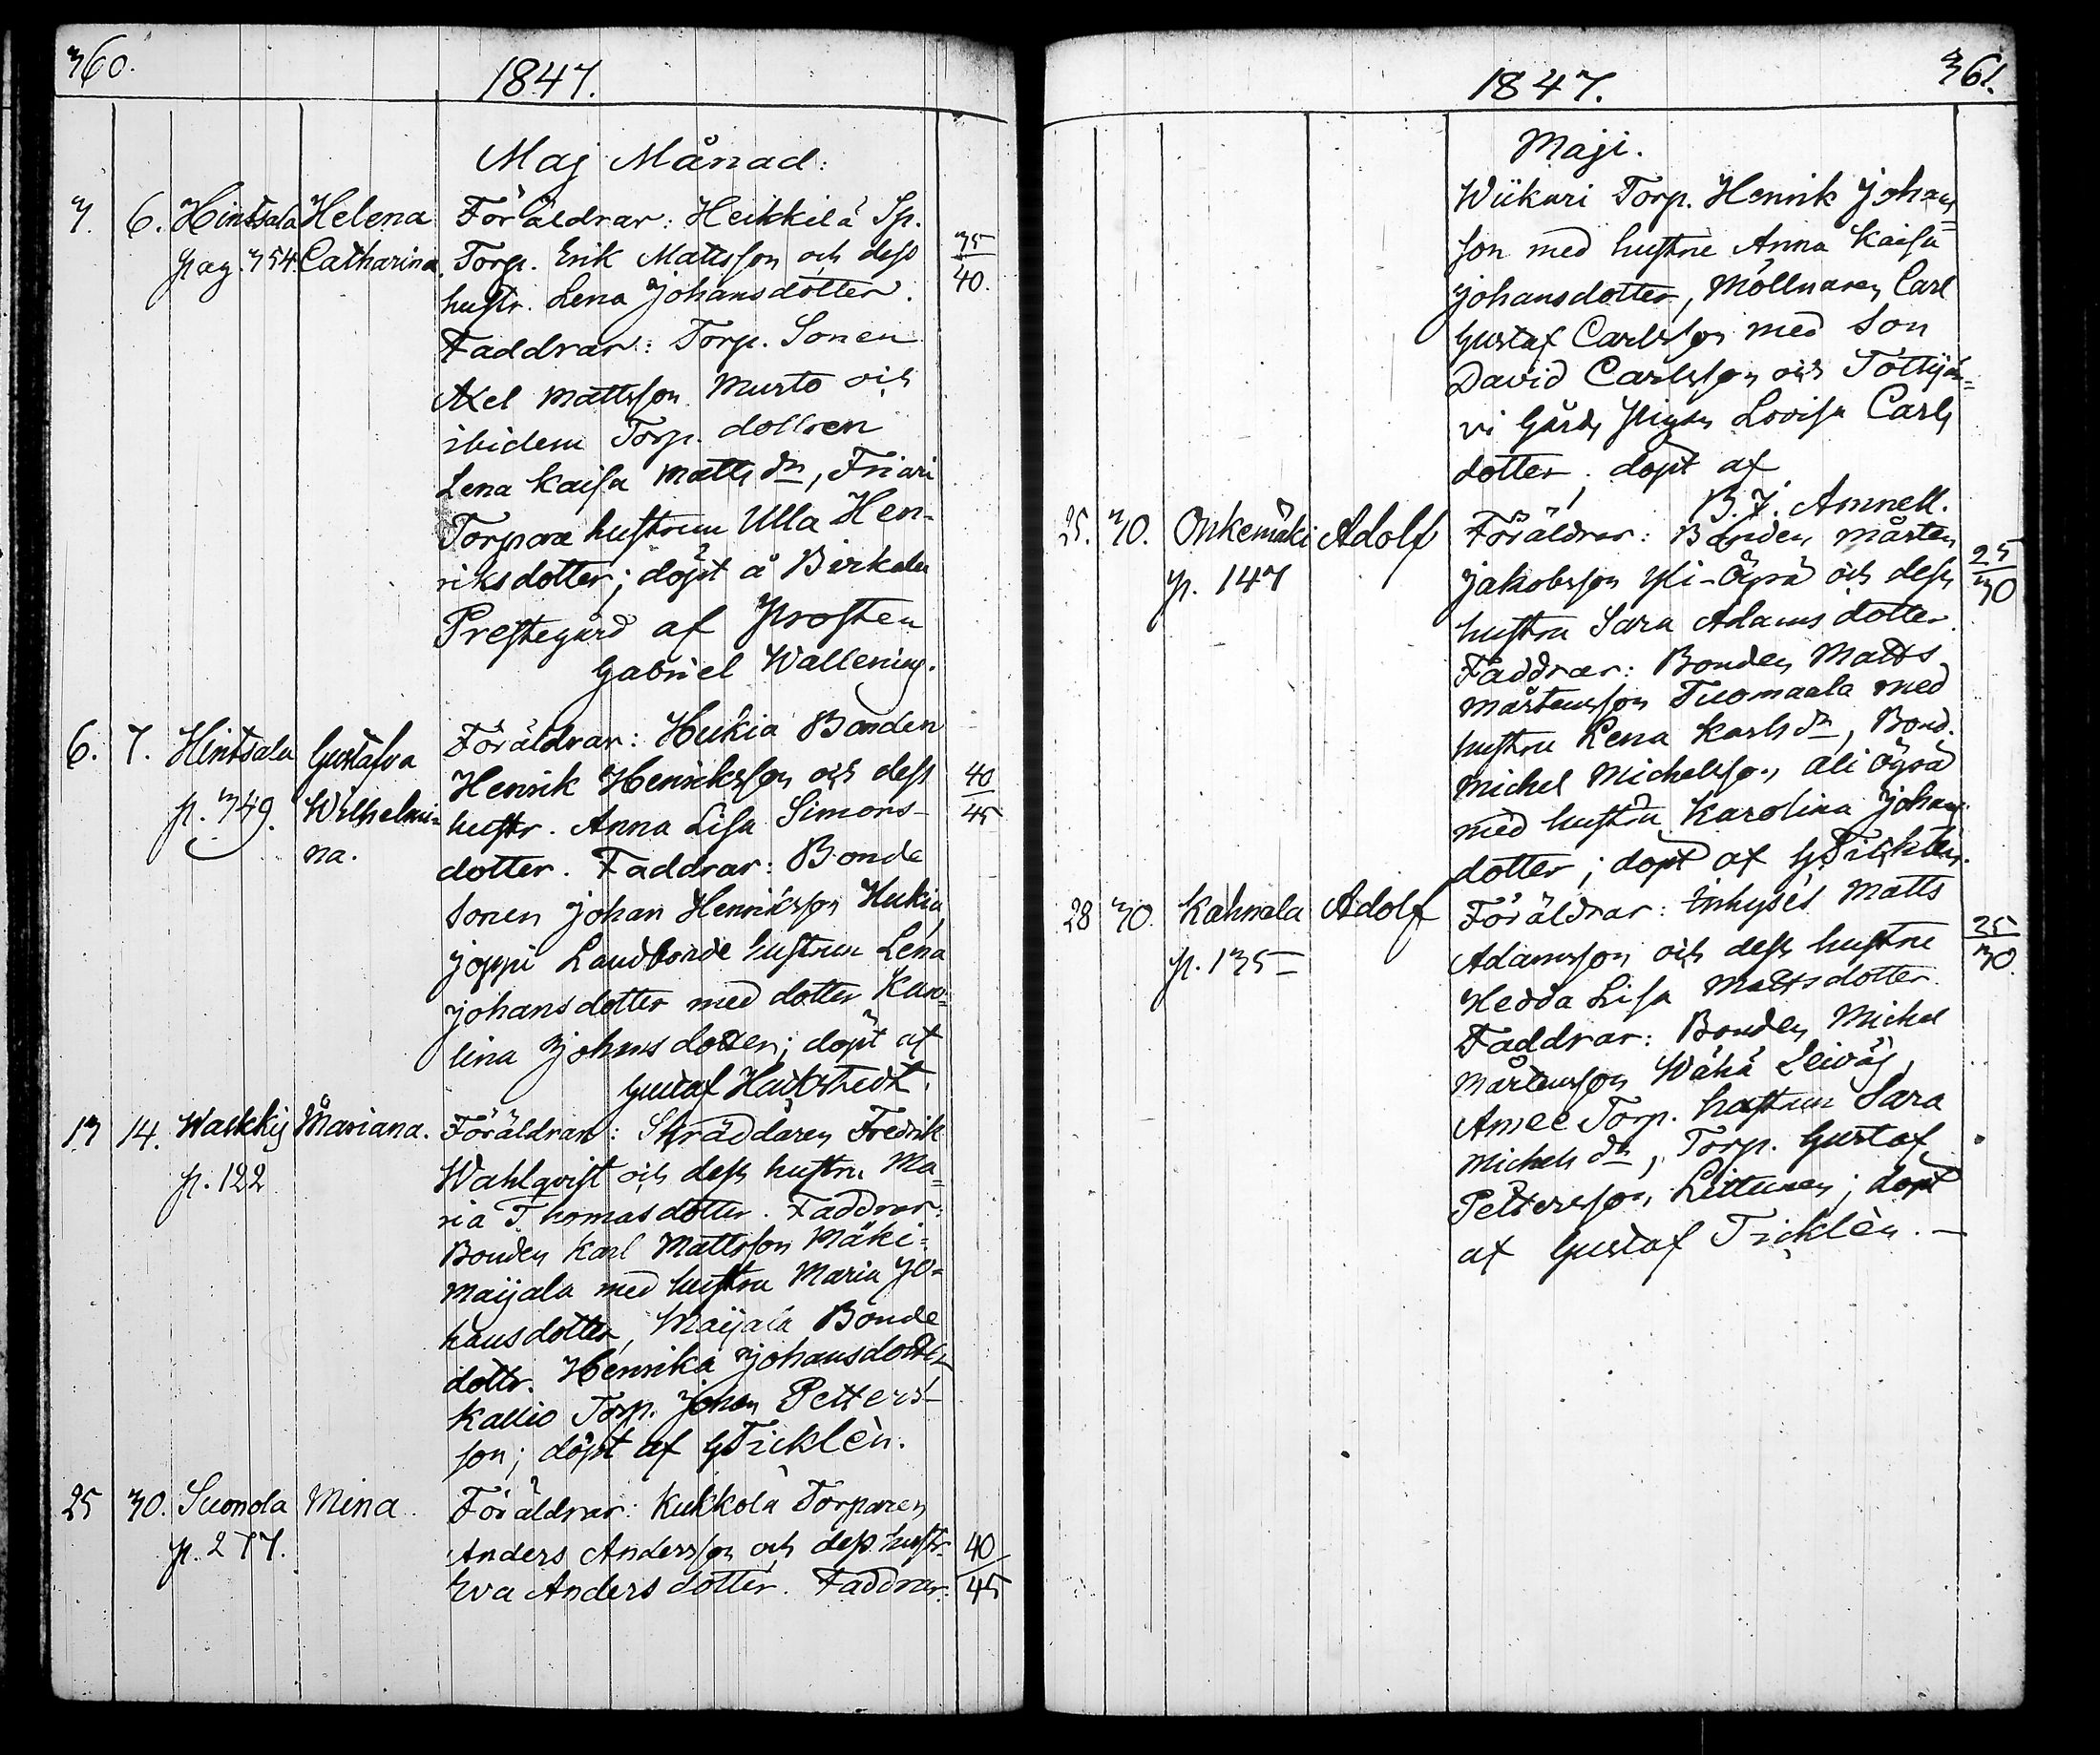 360.
1847.
Maj Månad:
3. 6. Hintsala Helena Föräldrar: Heikkilä Sp.
pag. 354. Catharina. Torp. Erik Mattsson och dess 35/40.
hustr. Lena Johansdotter.
Faddrar: Torp. Sonen
Axel Mattsson Murto och
ibidem Torp. dottren
Lena Kaisa Matts dr, Friari
Torpare hustrun Ulla Hen-
riksdotter; döpt å Birkala
Prestegård af Prosten
Gabriel Wallenius.
6. 7. Hintsala Gustafva Föräldrar: Hukia Bonden
p. 349. Wilhelmi= Henrik Henriksson och dess 40/45
na. hustr. Anna Lisa Simons-
dotter. Faddrar: Bonde
Sonen Johan Henriksson Hukia,
Joppi Landbonde hustrun Lena
Johansdotter med dotter Karo=
lina Johansdotter; döpt af
Gustaf Hackstedt.
13 14. Waskkij Mariana. Föräldrar: Skräddaren Fredrik
p. 122 Wahlqvist och dess hustru Ma=
ria Thomasdotter. Faddrar:
Bonden Karl Mattsson Mäki=
maijala med hustru Maria Jo=
hansdotter, Maijala Bonde
dottr. Henrika Johansdotter
Kallio Torp. Johan Petters-
son; döpt af G Ticklèn.
25 30. Suonola Mina. Föräldrar: Kukkola Torparen
p. 277. Anders Andersson och dess hustr. 40/45
Eva Andersdotter. Faddrar:
361.
1847.
Maji.
Wiikari Torp. Henrik Johans=
son med hustru Anna Kaisa
Johansdotter, Möllnaren Carl
Gustaf Carlsson med Son
David Carlsson och Tottijär=
vi Gårds Pigan Lovisa Carls
dotter; döpt af
B. J. Amnell.
25. 30. Onkemäki Adolf Föräldrar: Bonden Mårten
p. 147 Jakobsson Yli-Äyrä och dess 25/30
hustru Sara Adamsdotter.
Faddrar: Bonden Matts
Mårtensson Tuomaala med
hustru Lena Karls dr, Bond.
Michel Michelsson Ali Äyrä
med hustru Karolina Johans
dotter; döpt af G Ticklèn.
28 30. Kahnala Adolf Föräldrar: Inhyses Matts
p. 135 Adamsson och dess hustru 25/30.
Hedda Lisa Mattsdotter.
Faddrar: Bonden Michel
Mårtensson Wähä Leiväs,
Amee Torp. hustrun Sara
Michels dr, Torp. Gustaf
Pettersson Littunen; döpt
af Gustaf Ticklèn. —